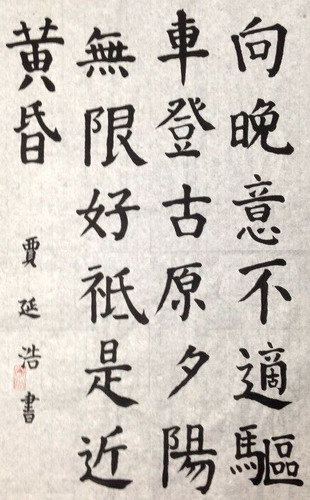 向晚意不適驅
車登古原夕陽
無限好祇是近
黃昏
賈延浩書